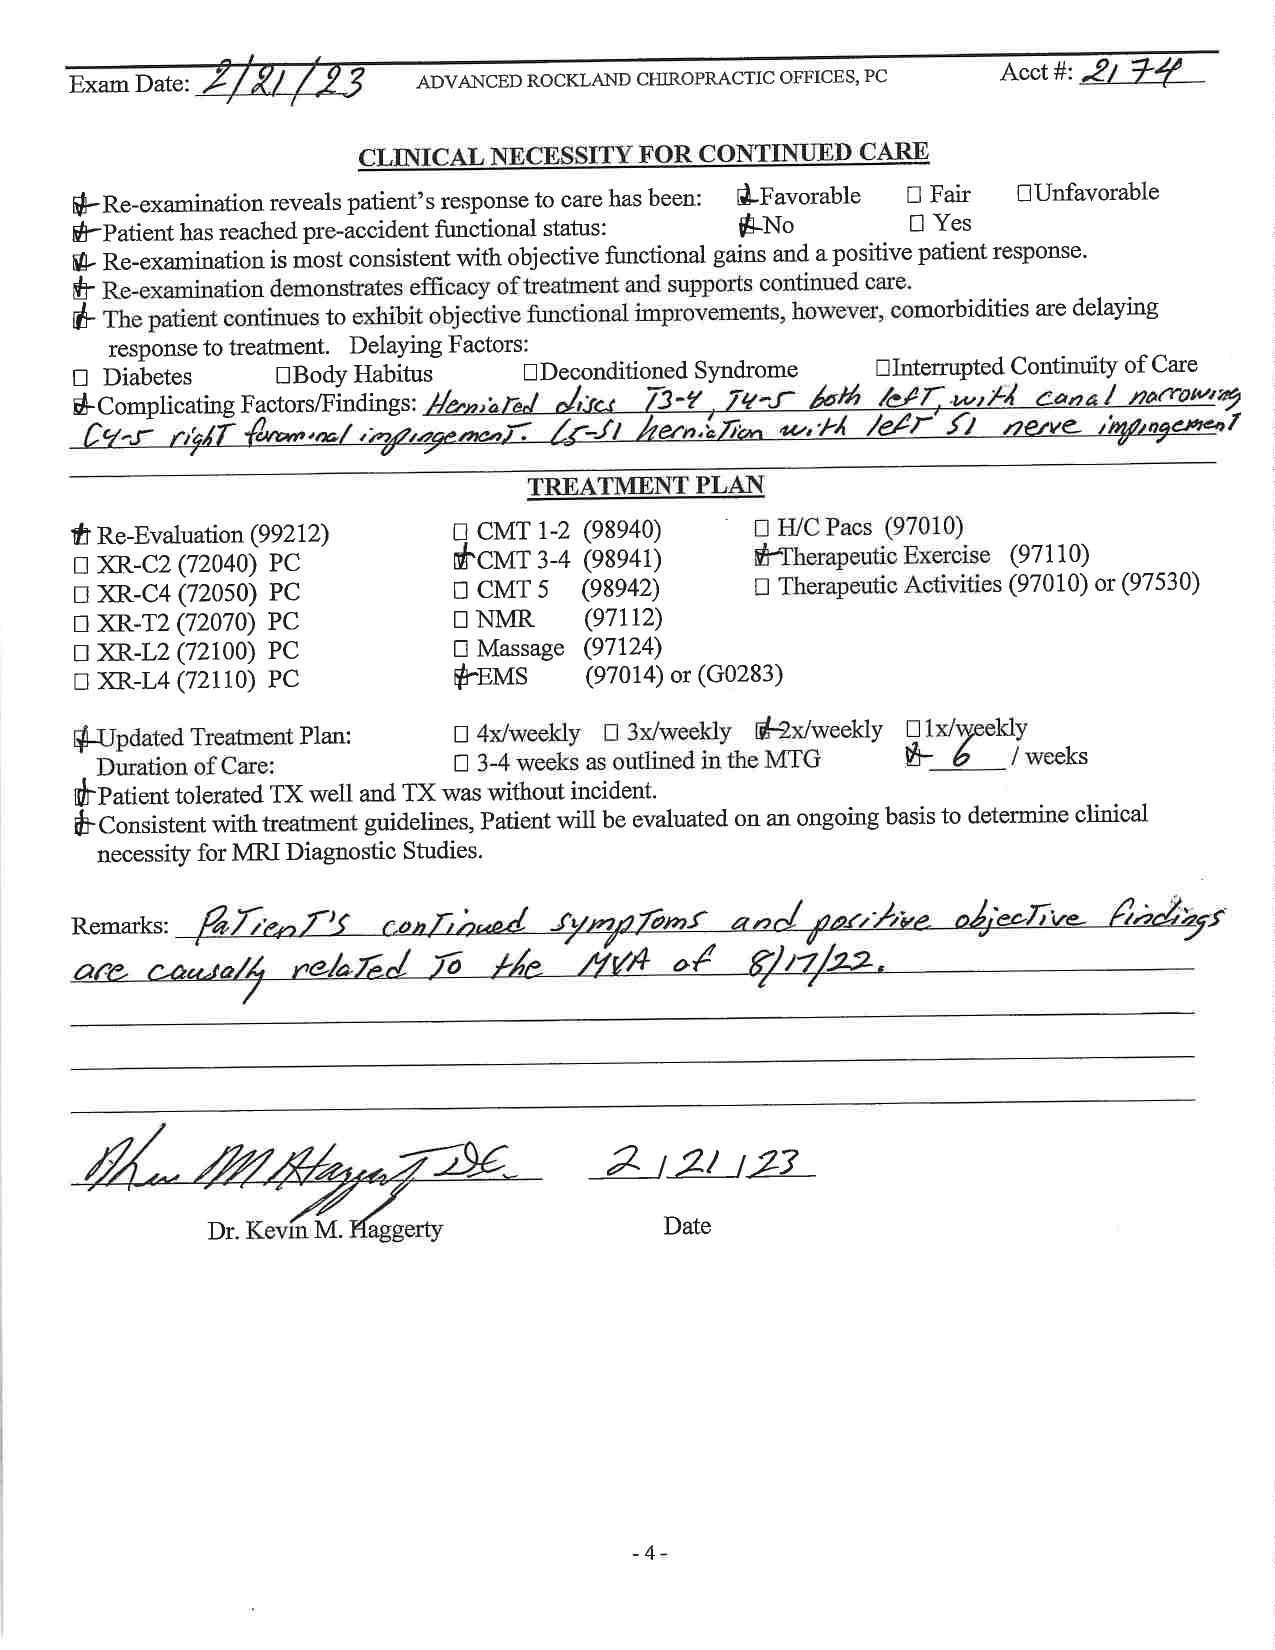 Exam Date: 2/21/23 ADVANCED ROCKLAND CHIROPRACTIC OFFICES, PC Acct #: 2174
CLINICAL NECESSITY FOR CONTINUED CARE
☑ Re-examination reveals patient's response to care has been: ☑ Favorable ☐ Fair ☐ Unfavorable
☑ Patient has reached pre-accident functional status: ☑ No ☐ Yes
☑ Re-examination is most consistent with objective functional gains and a positive patient response.
☑ Re-examination demonstrates efficacy of treatment and supports continued care.
☑ The patient continues to exhibit objective functional improvements, however, comorbidities are delaying
response to treatment. Delaying Factors:
☐ Diabetes ☐ Body Habitus ☐ Deconditioned Syndrome ☐ Interrupted Continuity of Care
☑ Complicating Factors/Findings: Herniated discs T3-4, T4-5 both left, with canal narrowing
C4-5 right foraminal impingement. L5-S1 herniation with left S1 nerve impingement
TREATMENT PLAN
☑ Re-Evaluation (99212) ☐ CMT 1-2 (98940) ☐ H/C Pacs (97010)
☐ XR-C2 (72040) PC ☑ CMT 3-4 (98941) ☑ Therapeutic Exercise (97110)
☐ XR-C4 (72050) PC ☐ CMT 5 (98942) ☐ Therapeutic Activities (97010) or (97530)
☐ XR-T2 (72070) PC ☐ NMR (97112)
☐ XR-L2 (72100) PC ☐ Massage (97124)
☐ XR-L4 (72110) PC ☑ EMS (97014) or (G0283)
☑ Updated Treatment Plan: ☐ 4x/weekly ☐ 3x/weekly ☑ 2x/weekly ☐ 1x/weekly
Duration of Care: ☐ 3-4 weeks as outlined in the MTG ☑ 6 / weeks
☑ Patient tolerated TX well and TX was without incident.
☑ Consistent with treatment guidelines, Patient will be evaluated on an ongoing basis to determine clinical
necessity for MRI Diagnostic Studies.
Remarks: Patient's continued symptoms and positive objective findings
are causally related to the MVA of 8/17/22.
M Haggerty DC. 2/21/23
Dr. Kevin M. Haggerty Date
- 4 -